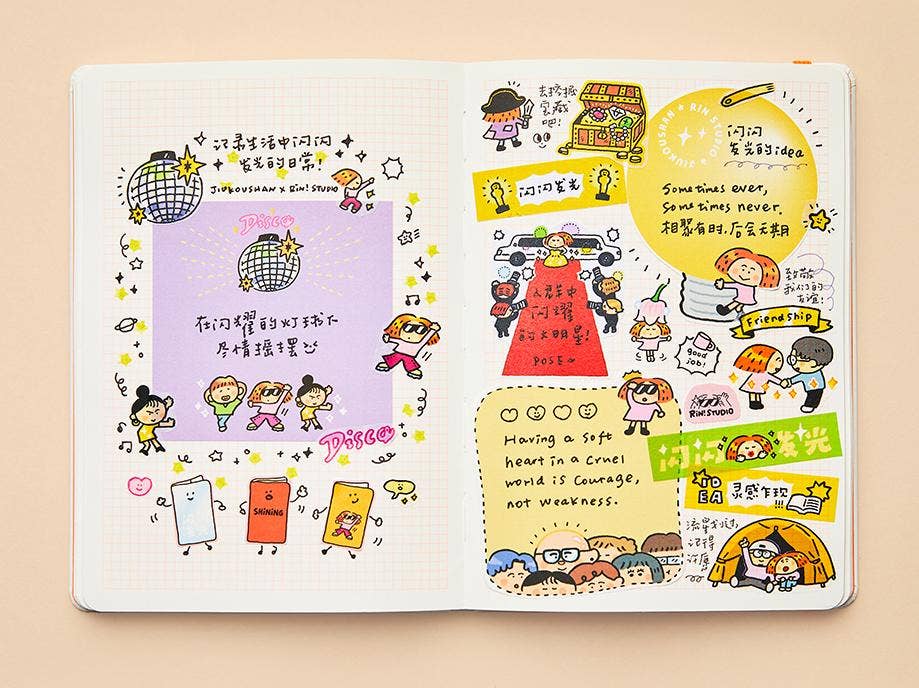 记录生活中闪闪
发光的日常!
JIUKOUSHAN x RIN! STUDIO
Disco
在闪耀的灯球下
尽情摇摆
Disco
SHINING
去挖掘
宝藏
吧!
闪闪发光
RIN STUDIO ★ JIUKOUSHAN ★
闪闪
发光的idea
Sometimes ever,
Sometimes never.
相聚有时,后会无期
人群中
闪耀
的大明星!
POSE
致敬
我们的
友谊!
Friendship
good
job!
RIN! STUDIO
Having a Soft
heart in a cruel
world is courage,
not weakness.
闪闪发光
IDEA
灵感乍现!!!
流星划过,
记得
许愿